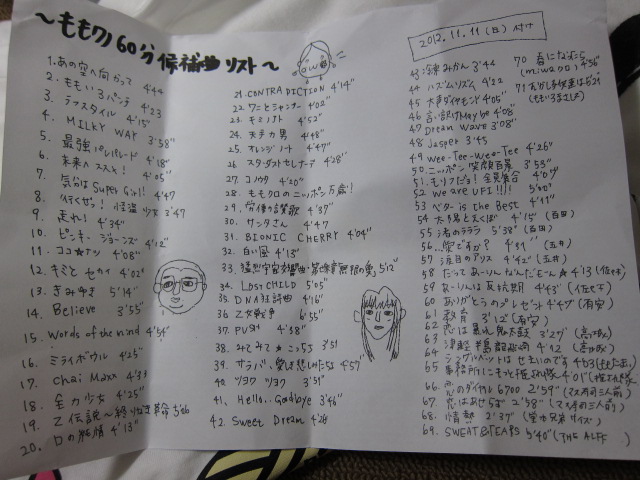 〜ももクロ60分候補曲リスト〜
2012.11.11(日)付け
1. あの空へ向かって 4'44
2. ももいろパンチ 4'23
3. ラフスタイル 4'15
4. MILKY WAY 3'58"
5. 最強パレパレード 4'18"
6. 未来へススメ! 4'05"
7. 気分はSuper Girl! 4'47
8. 行くぜっ!怪盗少女 3'47
9. 走れ! 4'34"
10. ピンキージョーンズ 4'12"
11. ココ★ナツ 4'08"
12. キミとセカイ 4'02"
13. きみゆき 5'14"
14. Believe 3'55"
15. Words of the mind 4'54"
16. ミライボウル 4'25"
17. Chai Maxx 4'33
18. 全力少女 4'25"
19. Z伝説〜終りなき革命
20. D'の純情 4'13"
21. CONTRADICTION 4'14"
22. ワニとシャンプー 4'02"
23. キミノアト 4'52"
24. 天手力男 4'48"
25. オレンジノート 4'47"
26. スターダストセレナーデ 4'28"
27. コノウタ 4'20"
28. ももクロのニッポン万歳!
29. 労働讃歌 4'37"
30. サンタさん 4'47
31. BIONIC CHERRY 4'04"
32. 白い風 4'13"
33. 猛烈宇宙交響曲・第七楽章「無限の愛」 5'12"
34. LOST CHILD 5'05
35. DNA狂詩曲 4'16"
36. 乙女戦争 6'55"
37. PUSH 4'38"
38. みてみて★こっちっち 3'51
39. サラバ、愛しき悲しみたちよ 4'57
40. ツヨクツヨク 3'51"
41. Hello...Goodbye 3'46"
42. Sweet Dream 4'28
43. 冷凍みかん 3'44
44. ハズムリズム 4'22
45. 大声ダイヤモンド 4'05"
46. 言い訳Maybe 4'08"
47. Dream Wave 3'08"
48. Jasper 3'45
49. Wee-Tee-Wee-Tee 4'26"
50. ニッポン笑顔百景 3'53"
51. もリフだョ!全員集合 4'09"
52. We are UFI!!!! 5'00"
53. ベター is the Best 4'11"
54. 太陽とえくぼ 4'15" (百田)
55. 渚のラララ 5'38" (百田)
56. …愛ですか? (玉井)
57. 涙目のアリス 4'42" (玉井)
58. だって あーりんなんだもーん★ 4'13 (佐々木)
59. あーりんは反抗期 4'43" (佐々木)
60. ありがとうのプレゼント 4'47 (有安)
61. 教育 3'12 (有安)
62. 恋は暴れ鬼太鼓 3'27 (高城)
63. 津軽半島龍飛崎 4'42 (高城)
64. シングルベッドはせまいのです 4'03
65. 事務所にもっと推され隊 4'01"
66. 恋のダイヤル6700 2'59"
67. 恋はあせらず 2'58"
68. 情熱 2'37"
69. SWEAT&TEARS 5'40" (THE ALFEE)
70 春になったら (miwa) 4'56"
71